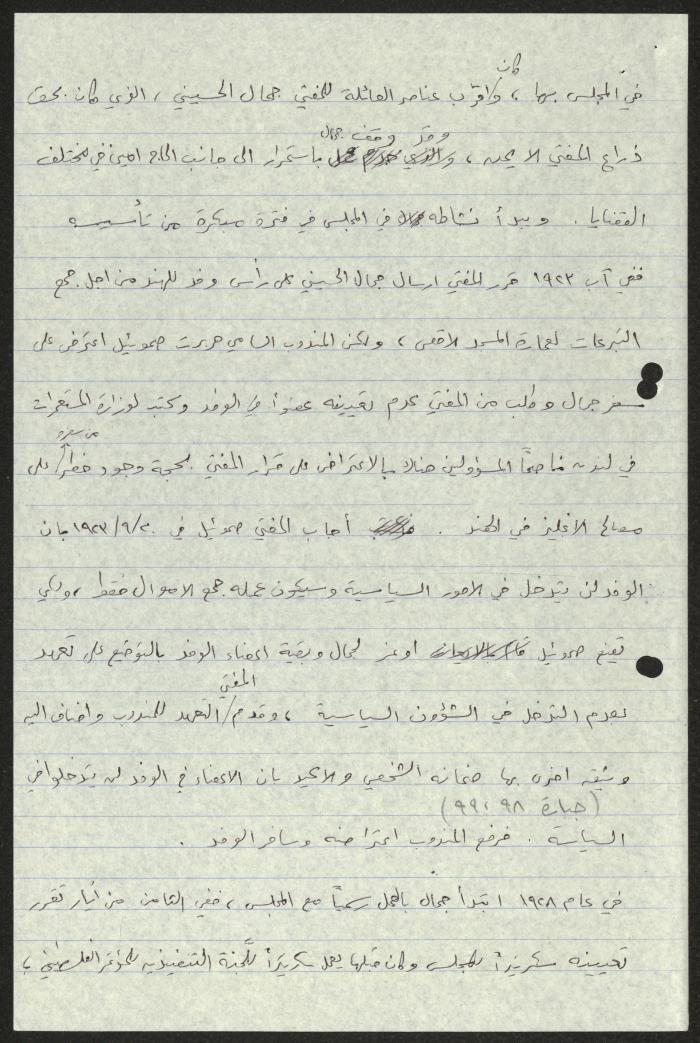 كان
في المجلس بها ، واقرب عناصر العائلة للمفتي جمال الحسيني ، الذي كان بحق
وقد وقف جمال
ذراع المفتي الايمن ، باستمرار الى جانب الحاج امين في مختلف
القضايا . ويبدأ نشاطه في المجلس في فترة مبكرة من تأسيسه
ففي آب ١٩٢٣ قرر المفتي ارسال جمال الحسيني على رأس وفد للهند من اجل جمع
التبرعات لعمارة المسجد الاقصى ، ولكن المندوب السامي هربرت صموئيل اعترض على
سفر جمال وطلب من المفتي عدم تعيينه عضواً في الوفد وكتب لوزارة المستعمرات
من سفره
في لندن ناصحاً المسؤولين هناك بالاعتراض على قرار المفتي بحجة وجود خطر / على
مصالح الانجليز في الهند . أجاب المفتي صموئيل في ١٩٢٣/٩/٢٠ بان
الوفد لن يتدخل في الامور السياسية وسيكون عمله جمع الاموال فقط ، ولكي
يقنع صموئيل اوعز لجمال وبقية اعضاء الوفد بالتوقيع على تعهد
المفتي
بعدم التدخل في الشؤون السياسية ، وقدم / التعهد للمندوب واضاف اليه
وثيقة اخرى بها ضمانه الشخصي والاكيد بان الاعضاء في الوفد لن يتدخلوا في
(جبارة ٩٨ ، ٩٩)
السياسة . فرفع المندوب اعتراضه وسافر الوفد .
في عام ١٩٢٨ ابتدأ جمال بالعمل رسمياً مع المجلس ، ففي الثامن من أيار تقرر
تعيينه سكرتيراً للمجلس وكان قبلها يعمل سكرتيراً للجنة التنفيذيه للمؤتمر الفلسطيني